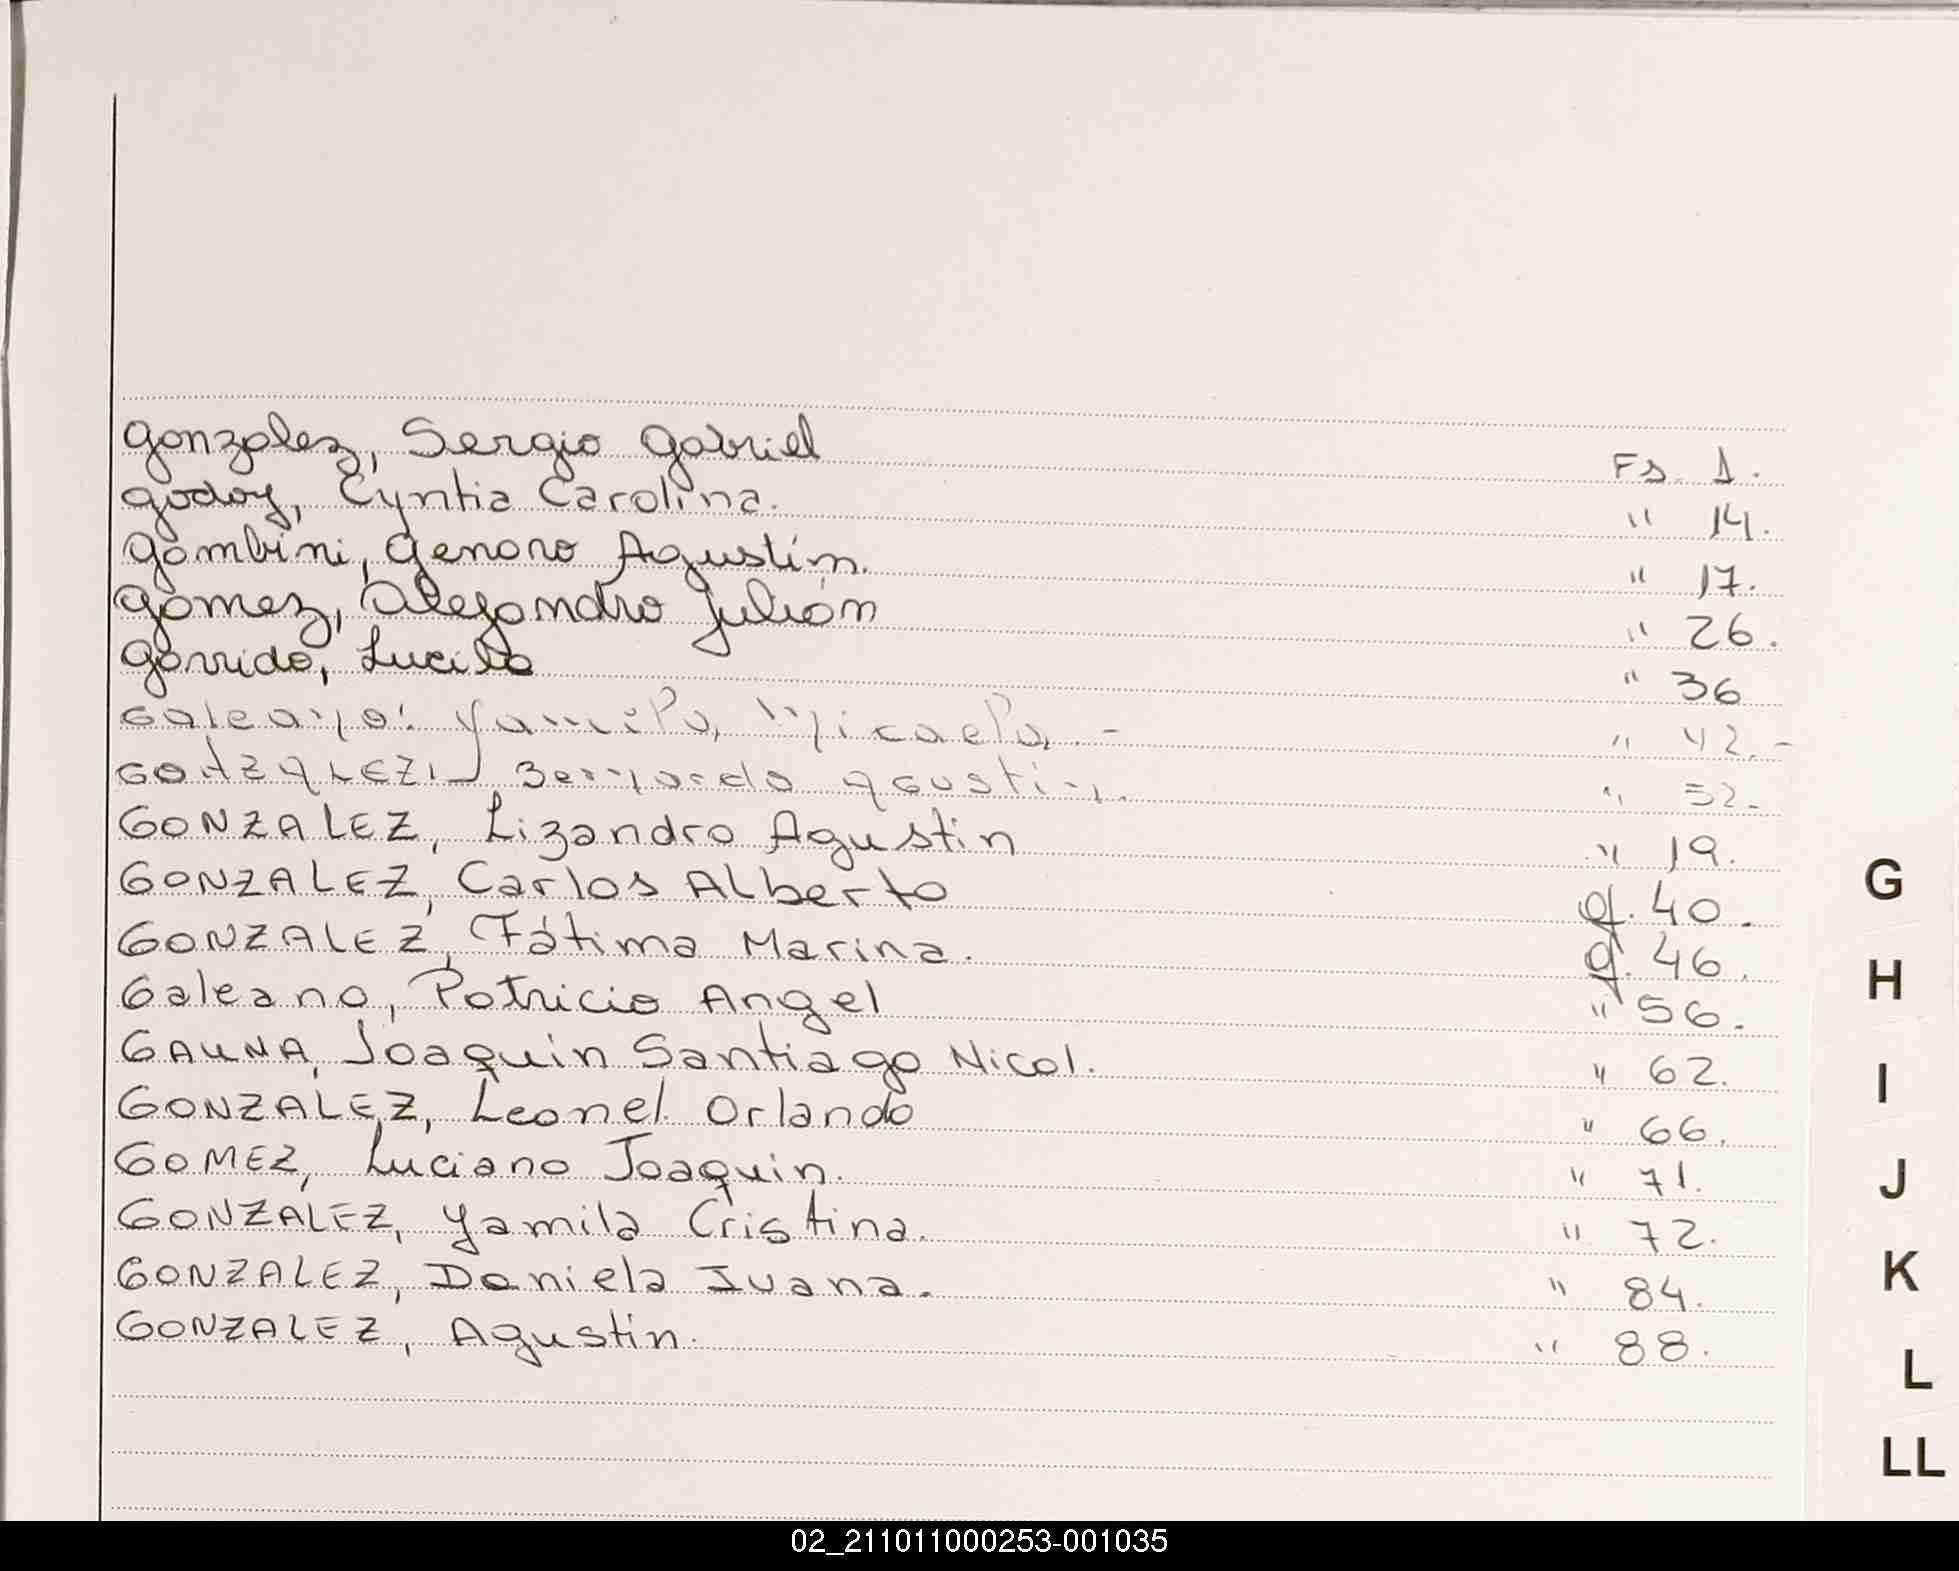 Gonzalez, Sergio Gabriel Fs. 1.
Godoy, Cyntia Carolina. " 14.
Gambini, Genaro Agustín. " 17.
Gomez, Alejandro Julián " 26.
Garrido, Lucila " 36
Galeano: Yamila, Micaela.- " 42.-
GONZALEZ, Bernardo Agustin. " 52.-
GONZALEZ, Lizandro Agustin " 19.
GONZALEZ, Carlos Alberto f. 40.
GONZALEZ, Fátima Marina. f. 46.
Galeano, Patricio Angel " 56.
GAUNA, Joaquin Santiago Nicol. " 62.
GONZALEZ, Leonel Orlando " 66.
GOMEZ, Luciano Joaquin. " 71.
GONZALEZ, Yamila Cristina. " 72.
GONZALEZ, Daniela Ivana. " 84.
GONZALEZ, Agustin. " 88.
G
H
I
J
K
L
LL
02_211011000253-001035